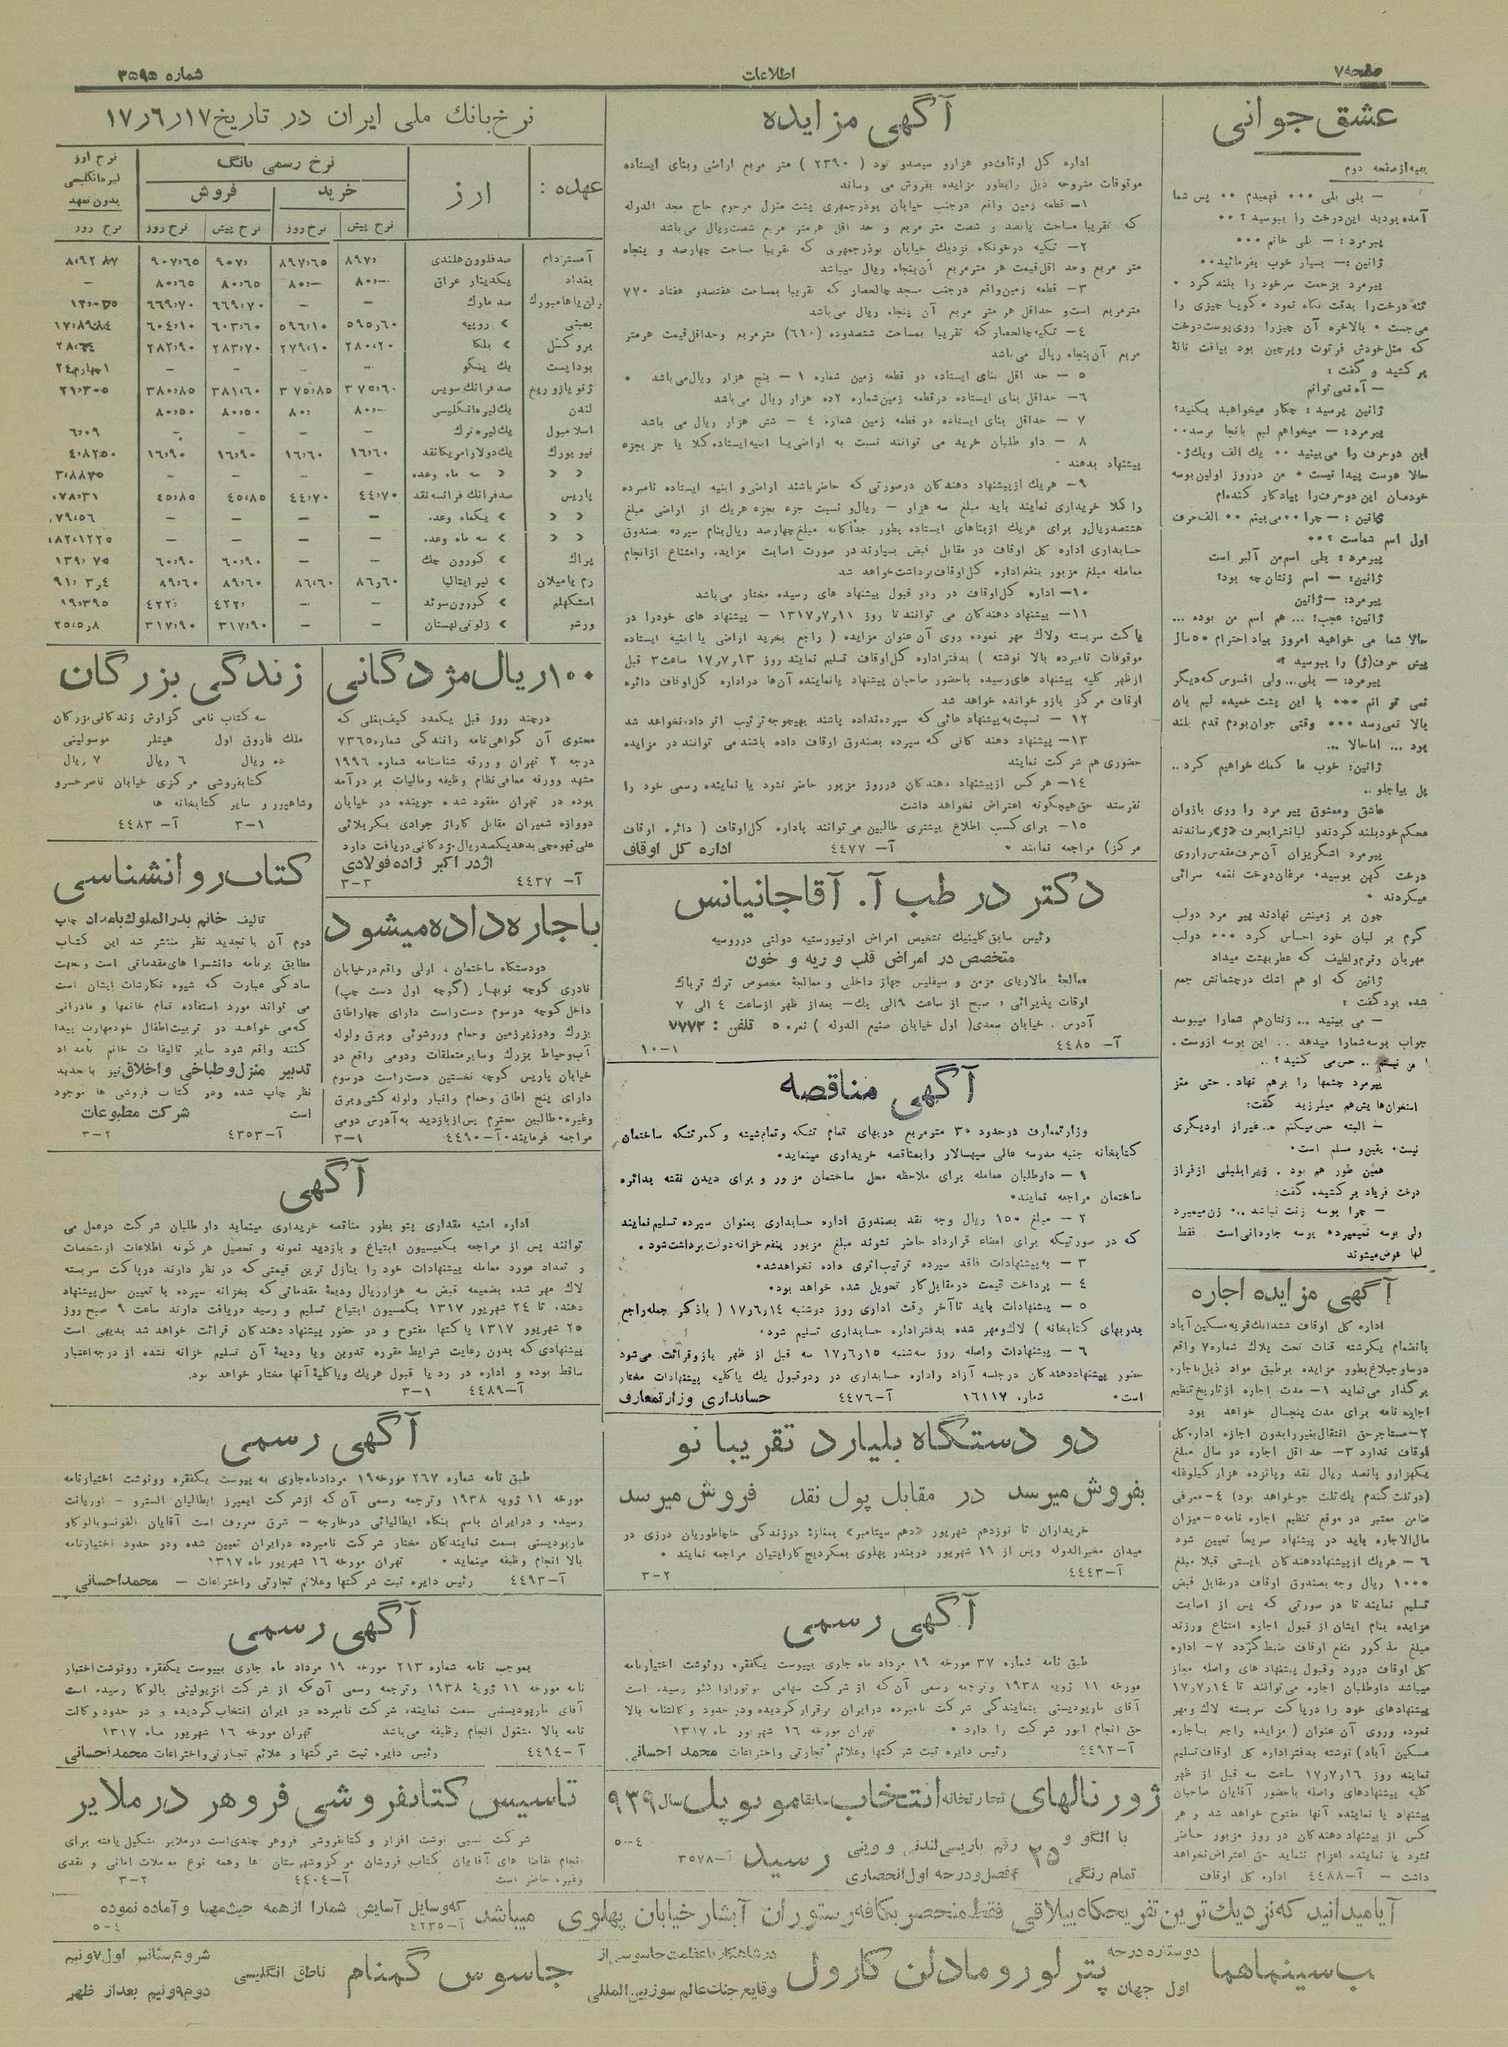 صفحه ۷
اطلاعات
شماره ۳۵۹۵
عشق جوانی
بقیه از صفحه دوم
— بلی بلی ۰۰۰ فهمیدم ۰۰ پس شما
آمده بودید این درخت را ببوسید ؟ ۰۰
پیرمرد : — بلی خانم ۰۰۰
ژانین :— بسیار خوب بفرمائید ۰۰
پیرمرد بزحمت سرخود را بلند کرد ۰
تنه درخت را بدقت نگاه نمود ۰ گویا چیزی را
می‌جست ۰ بالاخره آن چیز را روی پوست درخت
که مثل خودش فرتوت و پرچین بود بیافت نالهٔ
بر کشید و گفت :
— آه نمی توانم
ژانین پرسید : چکار میخواهید بکنید؟
پیرمرد: — میخواهم لبم بانجا برسد ۰۰
این دو حرف را می‌بینید ۰۰ یك الف ویك ژ ۰
حالا هوست پیدا نیست ۰ من در روز اولین بوسه
خودمان این دو حرف را بیادگار کنده‌ام
ژانین : — چرا ۰۰ می‌بینم ۰۰ الف حرف
اول اسم شماست ؟ ۰۰
پیرمرد : بلی اسم من آلبر است
ژانین: — اسم زنتان چه بود؟
پیرمرد: — ژانین
ژانین: عجب! ... هم اسم من بوده ...
حالا شما می خواهید امروز بیاد احترام ۵۰ سال
پیش حرف (ژ) را ببوسید ؟
پیرمرد: — بلی... ولی افسوس که دیگر
نمی توانم ۰۰۰ با این پشت خمیده لبم بان
بالا نمی رسد ۰۰۰ وقتی جوان بودم قدم بلند
بود ... اما حالا ...
ژانین: خوب ما کمك خواهیم کرد ..
پل بیا جلو ..
عاشق و معشوق پیر مرد را روی بازوان
محکم خود بلند کردند و لبانش را بحرف «ژ» رساندند
پیرمرد اشگریزان آن حرف مقدس را روی
درخت کهن بوسید ۰ مرغان درخت نغمه سرائی
میکردند ۰
چون بر زمینش نهادند پیر مرد دولب
گرم بر لبان خود احساس کرد ۰۰۰ دولب
مهربان و نرم و لطیف که عطر بهشت میداد
ژانین که او هم اشك در چشمانش جمع
شده بود گفت :
— می بینید ... زنتان هم شمارا میبوسد
جواب بوسه شمارا میدهد ... این بوسه از اوست .
من نیستم .. حس می کنید ؟ ..
پیرمرد چشمها را برهم نهاد . حتی مغز
استخوان‌هایش هم میلرزید گفت:
— البته حس میکنم ... غیر از او دیگری
نیست ۰ یقین و مسلم است ۰
همین طور هم بود . زیرا بلبلی از فراز
درخت فریاد بر کشیده گفت:
— چرا بوسه زنت نباشد ... زن میمیرد
ولی بوسه نمیمیرد ۰ بوسه جاودانی است فقط
لبها عوض میشوند
آگهی مزایده اجاره
اداره کل اوقاف ششدانگ قریه مسکین آباد
بانضمام یکرشته قنات تحت پلاك شماره ۷ واقع
در ساوجبلاغ بطور مزایده برطبق مواد ذیل باجاره
برگذار می نماید ۱— مدت اجاره از تاریخ تنظیم
اجاره نامه برای مدت پنجسال خواهد بود
۲— مستاجر حق انتقال بغیر را بدون اجازه اداره کل
اوقاف ندارد ۳— حد اقل اجاره در سال مبلغ
یکهزار و پانصد ریال نقد و پانزده هزار کیلو غله
(دو ثلث گندم یك ثلث جو خواهد بود) ۴— معرفی
ضامن معتبر در موقع تنظیم اجاره نامه ۵— میزان
مال الاجاره باید در پیشنهاد صریحا تعیین شود
۶— هریك از پیشنهاد دهندگان بایستی قبلا مبلغ
۱۰۰۰ ریال وجه بصندوق اوقاف در مقابل قبض
تسلیم نمایند تا در صورتی که پس از اصابت
مزایده بنام ایشان از قبول اجاره امتناع ورزند
مبلغ مذکور بنفع اوقاف ضبط گردد ۷— اداره
کل اوقاف در رد و قبول پیشنهاد های واصله مجاز
میباشد داوطلبان اجاره می توانند تا ۱۷٫۷٫۱۴
پیشنهادهای خود را در پاکت سربسته لاك و مهر
نموده و روی آن عنوان ( مزایده راجع باجاره
مسکین آباد) نوشته بدفتر اداره کل اوقاف تسلیم
نمایند روز ۱۷٫۷٫۱۶ ساعت سه قبل از ظهر
کلیه پیشنهادهای واصله باحضور آقایان صاحبان
پیشنهاد یا نماینده آنها مفتوح خواهد شد و هر
کس از پیشنهاد دهندگان در روز مزبور حاضر
نشود یا نماینده اعزام ننماید حق اعتراض نخواهد
داشت — آ—۴۴۸۸ اداره کل اوقاف
آگهی مزایده
اداره کل اوقاف دو هزار و سیصد و نود ( ۲۳۹۰ ) متر مربع اراضی و بنای ایستاده
موقوفات مشروحه ذیل را بطور مزایده بفروش می رساند
۱— قطعه زمین واقع در جنب خیابان بوذرجمهری پشت منزل مرحوم حاج مجد الدوله
که تقریبا مساحت پانصد و شصت متر مربع و حد اقل هر متر مربع شصت ریال می باشد
۲— تکیه در خونگاه نزدیك خیابان بوذرجمهری که تقریبا مساحت چهارصد و پنجاه
متر مربع وحد اقل قیمت هر متر مربع آن پنجاه ریال میباشد
۳— قطعه زمین واقع در جنب مسجد چالحصار که تقریبا بمساحت هفتصد و هفتاد ۷۷۰
متر مربع است و حداقل هر متر مربع آن پنجاه ریال می باشد
۴— تکیه چالحصار که تقریبا بمساحت ششصد و ده (۶۱۰) متر مربع و حداقل قیمت هر متر
مربع آن پنجاه ریال می باشد
۵— حد اقل بنای ایستاده دو قطعه زمین شماره ۱— پنج هزار ریال می باشد ۰
۶— حداقل بنای ایستاده در قطعه زمین شماره ۲ ده هزار ریال می باشد
۷— حداقل بنای ایستاده دو قطعه زمین شماره ۴ — شش هزار ریال می باشد
۸— داو طلبان خرید می توانند نسبت به اراضی یا ابنیه ایستاده کلا یا جز بجزء
پیشنهاد بدهند ۰
۹— هریك از پیشنهاد دهندگان در صورتی که حاضر باشند اراضی و ابنیه ایستاده نامبرده
را کلا خریداری نمایند باید مبلغ سه هزار — ریال و نسبت جزء بجزء هریك از اراضی مبلغ
هشتصد ریال و برای هریك از بناهای ایستاده بطور جداگانه مبلغ چهارصد ریال بنام سپرده بصندوق
حسابداری اداره کل اوقاف در مقابل قبض بسپارند در صورت اصابت مزایده و امتناع از انجام
معامله مبلغ مزبور بنفع اداره کل اوقاف برداشت خواهد شد
۱۰— اداره کل اوقاف در رد و قبول پیشنهاد های رسیده مختار می باشد
۱۱— پیشنهاد دهندگان می توانند تا روز ۱۳۱۷٫۷٫۱۱ — پیشنهاد های خود را در
پاکت سربسته ولاك مهر نموده روی آن عنوان مزایده ( راجع بخرید اراضی یا ابنیه ایستاده
موقوفات نامبرده بالا نوشته ) بدفتر اداره کل اوقاف تسلیم نمایند روز ۱۷٫۷٫۱۳ ساعت ۳ قبل
از ظهر کلیه پیشنهاد های رسیده باحضور صاحبان پیشنهاد یا نماینده آن‌ها در اداره کل اوقاف دائره
اوقاف مرکز بازو خوانده خواهد شد
۱۲— نسبت به پیشنهاد هائی که سپرده نداده باشند بهیچوجه ترتیب اثر داده نخواهد شد
۱۳— پیشنهاد دهند کانی که سپرده بصندوق اوقاف داده باشند می توانند در مزایده
حضوری هم شرکت نمایند
۱۴— هرکس از پیشنهاد دهندگان در روز مزبور حاضر نشود یا نماینده رسمی خود را
نفرستد حق هیچگونه اعتراض نخواهد داشت
۱۵— برای کسب اطلاع بیشتری طالبین می توانند باداره کل اوقاف ( دائره اوقاف
مرکز) مراجعه نمایند ۰ آ— ۴۴۷۷ اداره کل اوقاف
دکتر در طب آ. آقاجانیانس
رئیس سابق کلینیك تشخیص امراض اونیورسیته دولتی در روسیه
متخصص در امراض قلب و ریه و خون
معالجهٔ مالاریای مزمن و سیفلیس جهاز داخلی و معالجهٔ مخصوص ترك تریاك
اوقات پذیرائی : صبح از ساعت ۹ الی یك — بعداز ظهر از ساعت ۴ الی ۷
آدرس . خیابان سعدی ( اول خیابان صنیع الدوله ) نمره ۵ تلفن : ۷۷۷۲
آ— ۴۴۸۵ ۱—۱۰
آگهی مناقصه
وزارتمعارف در حدود ۳۰ متر مربع دربهای تمام تنکه و تمام شیشه و کمر تنکه ساختمان
کتابخانه جنبه مدرسه عالی سپهسالار را بمناقصه خریداری مینماید ۰
۱— داوطلبان معامله برای ملاحظه محل ساختمان مزبور و برای دیدن نقشه بدائره
ساختمان مراجعه نمایند ۰
۲— مبلغ ۱۵۰ ریال وجه نقد بصندوق اداره حسابداری بعنوان سپرده تسلیم نمایند
که در صورتیکه برای امضاء قرارداد حاضر نشوند مبلغ مزبور بنفع خزانه دولت برداشت شود .
۳— به پیشنهادات فاقد سپرده ترتیب اثری داده نخواهد شد ۰
۴— پرداخت قیمت در مقابل کار تحویل شده خواهد بود ۰
۵— پیشنهادات باید تا آخر وقت اداری روز دوشنبه ۱۷٫۶٫۱۴ ( باذکر جمله راجع
بدربهای کتابخانه ) لاك و مهر شده بدفتر اداره حسابداری تسلیم شود ۰
۶— پیشنهادات واصله روز سه شنبه ۱۷٫۶٫۱۵ سه قبل از ظهر باز و قرائت می شود
حضور پیشنهاد دهندگان در جلسه آزاد و اداره حسابداری در رد و قبول یك یا کلیه پیشنهادات مختار
است ۰ شماره ۱۶۱۱۷ آ—۴۴۷۶ حسابداری وزارتمعارف
دو دستگاه بلیارد تقریبا نو
بفروش میرسد در مقابل پول نقد فروش میرسد
خریداران تا نوزدهم شهریور «دهم سپتامبر» بمغازهٔ دوزندگی خاچاطوریان درزی در
میدان مخبرالدوله و پس از ۱۹ شهریور در بندر پهلوی بمکردیچ کاراپتیان مراجعه نمایند ۰
آ—۴۴۴۳ ۲—۳
آگهی رسمی
طبق نامه شماره ۳۷ مورخه ۱۹ مرداد ماه جاری بپیوست یکفقره رونوشت اختیارنامه
مورخه ۱۱ ژویه ۱۹۳۸ و ترجمه رسمی آن که از شرکت سهامی موتورارا دتو رسیده است
آقای ماریودیستی بنمایندگی شرکت نامبرده در ایران برقرار گردیده و در حدود وکالتنامه بالا
حق انجام امور شرکت را دارد ۰ تهران مورخه ۱۶ شهریور ماه ۱۳۱۷
آ—۴۴۹۲ رئیس دایره ثبت شرکتها و علائم تجارتی و اختراعات محمد احسانی
ژورنالهای تجارتخانه انتخاب سابقا مو بو پل سال ۹۳۹
با الگو و ۲۵ رقم پاریسی لندنی و وینی رسید ۴—۵
تمام رنگی ۴ فصل و درجه اول انحصاری آ—۳۵۷۸
نرخ بانك ملی ایران در تاریخ ۱۷٫۶٫۱۷
عهده : ارز نرخ رسمی بانگ نرخ ارز
خرید فروش لیره انگلیسی
بدون تعهد
نرخ پیش نرخ روز نرخ پیش نرخ روز نرخ روز
آمستردام صد فلورن هلندی ۸۹۷٫ ۸۹۷٫۶۵ ۹۰۷٫ ۹۰۷٫۶۵ ۸٫۹۲ ۸۷
بغداد یکدینار عراق ۸۰٫— ۸۰٫— ۸۰٫۶۵ ۸۰٫۶۵ —
برلن یا هامبورك صد مارك — — ۶۶۹٫۷۰ ۶۶۹٫۷۰
بمبئی » روپیه ۵۹۵٫۶۰ ۵۹۶٫۱۰ ۶۰۳٫۶۰ ۶۰۴٫۱۰
بروکسل » بلگا ۲۸۰٫۲۰ ۲۷۹٫۱۰ ۲۸۳٫۷۰ ۲۸۲٫۹۰
بوداپست یك پنگو — — — —
ژنو یا زوریخ صد فرانك سویس ۳۷۵٫۶۰ ۳۷۵٫۸۵ ۳۸۱٫۶۰ ۳۸۰٫۸۵ ۲۱٫۳۰۵
لندن یك لیره انگلیسی ۸۰٫— ۸۰٫ ۸۰٫۵۰ ۸۰٫۵۰
اسلامبول یك لیره ترك — — — — ۶٫۰۹
نیویورك یك دولار امریکا نقد ۱۶٫۶۰ ۱۶٫۶۰ ۱۶٫۹۰ ۱۶٫۹۰ ۴٫۸۲۵۰
» » » سه ماه وعده ۳٫۸۸۷۵
پاریس صد فرانك فرانسه نقد ۴۴٫۷۰ ۴۴٫۷۰ ۴۵٫۸۵ ۴۵٫۸۵ ۱۷۸٫۳۱
» » » یکماه وعده — — — — ۱۷۹٫۵۶
» » » سه ماه وعده — — — — ۱۸۲٫۱۲۲۵
پراك » کورون چك — — ۶۰٫۹۰ ۶۰٫۹۰ ۱۳۹٫۷۵
رم یا میلان » لیر ایتالیا ۸۶٫۶۰ ۸۶٫۶۰ ۸۹٫۶۰ ۸۹٫۶۰
استکهلم » کورون سوئد — — ۴۲۲٫ ۴۲۲٫ ۱۹٫۳۹۵
ورشو » زلوتی لهستان — — ۳۱۷٫۹۰ ۳۱۷٫۹۰
۱۰۰ ریال مژدگانی
در چند روز قبل یکعدد کیف بغلی که
محتوی آن گواهی نامه رانندگی شماره ۷۳۶۵
درجه ۲ تهران و ورقه شناسنامه شماره ۱۹۹۶
مشهد و ورقه معافی نظام وظیفه و مالیات بر درآمد
بوده در تهران مفقود شده جوینده در خیابان
دروازه شمیران مقابل کاراژ جوادی بکربلائی
علی قهوه چی بدهد یکصد ریال مژدگانی دریافت دارد
اژدر اکبر زاده فولادی
آ— ۴۴۳۷ ۳—۳
باجاره داده میشود
دو دستگاه ساختمان ، اولی واقع در خیابان
نادری کوچه نوبهار ( کوچه اول دست چپ )
داخل کوچه در سوم دست راست دارای چهار اطاق
بزرك و دو زیرزمین و حمام و روشوئی و برق و لوله
آب و حیاط بزرك و سایر متعلقات و دومی واقع در
خیابان پاریس کوچه نخستین دست راست در سوم
دارای پنج اطاق و حمام و انبار و لوله کشی و برق
وغیره ۰ طالبین محترم پس از بازدید به آدرس دومی
مراجعه فرمایند ۰ آ—۴۴۹۰ ۱—۳
زندگی بزرگان
سه کتاب نامی گزارش زندگانی بزرگان
ملك فاروق اول هیتلر موسولینی
ده ریال ۶ ریال ۷ ریال
کتابفروشی مرکزی خیابان ناصر خسرو
وشاهپور و سایر کتابخانه ها
آ— ۴۴۸۳ ۱—۳
کتاب روانشناسی
تالیف خانم بدرالملوك بامداد چاپ
دوم آن با تجدید نظر منتشر شد این کتاب
مطابق برنامه دانشسرا های مقدماتی است و بجهت
سادگی عبارت که شیوه نگارشات ایشان است
می تواند مورد استفاده تمام خانمها و مادرانی
که می خواهند در تربیت اطفال خود مهارت پیدا
کنند واقع شود سایر تالیفات خانم بامداد
تدبیر منزل و طباخی و اخلاق نیز با تجدید
نظر چاپ شده و در کتاب فروشی ها موجود
است شرکت مطبوعات
آ—۴۳۵۳ ۲—۳
آگهی
اداره امنیه مقداری پتو بطور مناقصه خریداری مینماید داوطلبان شرکت در عمل می
توانند پس از مراجعه بکمیسیون ابتیاع و بازدید نمونه و تحصیل هر گونه اطلاعات از مشخصات
و تعداد مورد معامله پیشنهادات خود را بنازل ترین قیمتی که در نظر دارند در پاکت سربسته
لاك مهر شده بضمیمه قبض سه هزار ریال ودیعهٔ مقدماتی که بخزانه سپرده با تعیین محل پیشنهاد
دهنده تا ۲۴ شهریور ۱۳۱۷ بکمسیون ابتیاع تسلیم و رسید دریافت دارند ساعت ۹ صبح روز
۲۵ شهریور ۱۳۱۷ پاکتها مفتوح و در حضور پیشنهاد دهندگان قرائت خواهد شد بدیهی است
پیشنهادی که بدون رعایت شرایط مقرره تدوین ویا ودیعهٔ آن تسلیم خزانه نشده از درجه اعتبار
ساقط بوده و اداره در رد یا قبول هریك ویا کلیهٔ آنها مختار خواهد بود.
آ—۴۴۸۹ ۱—۳
آگهی رسمی
طبق نامه شماره ۲۶۷ مورخه ۱۹ مرداد ماه جاری به پیوست یکفقره رونوشت اختیارنامه
مورخه ۱۱ ژویه ۱۹۳۸ و ترجمه رسمی آن که از شرکت ایمپرز ایطالیان السترو — اوریانت
رسیده و در ایران باسم بنگاه ایطالیائی در خارجه — شرق معروف است آقایان الفونسو بالوکاو
ماریودیستی بسمت نمایندکان مختار شرکت نامبرده در ایران تعیین شده و در حدود اختیارنامه
بالا انجام وظیفه مینماید ۰ تهران مورخه ۱۶ شهریور ماه ۱۳۱۷
آ—۴۴۹۳ رئیس دایره ثبت شرکتها و علائم تجارتی و اختراعات — محمد احسانی
آگهی رسمی
بموجب نامه شماره ۲۱۳ مورخه ۱۹ مرداد ماه جاری بپیوست یکفقره رونوشت اختیار
نامه مورخه ۱۱ ژویهٔ ۱۹۳۸ و ترجمه رسمی آن که از شرکت انژیولینی بالوکا رسیده است
آقای ماریودیستی سمت نماینده شرکت نامبرده در ایران انتخاب گردیده و در حدود وکالت
نامه بالا مشغول انجام وظیفه می باشد تهران مورخه ۱۶ شهریور ماه ۱۳۱۷
آ—۴۴۹۴ رئیس دایره ثبت شرکتها و علائم تجارتی و اختراعات محمد احسانی
تاسیس کتابفروشی فروهر در ملایر
شرکت نسبی نوشت افزار و کتابفروشی فروهر چندی است در ملایر تشکیل یافته برای
انجام تقاضا های آقایان کتاب فروشان مرکز و شهرستان ها و همه نوع معاملات امانی و نقدی
وغیره حاضر است آ—۴۴۰۴ ۲—۳
آیا میدانید که نزدیك ترین تفریحگاه ییلاقی فقط منحصر بکافه رستوران آبشار خیابان پهلوی میباشد که وسایل آسایش شما را از همه حیث مهیا و آماده نموده
آ—۴۲۳۵ ۴—۵
ب سینما هما دو ستاره درجه اول جهان پتر لورو مادلن کارول در شاهکار با عظمت جاسوسی از وقایع جنك عالم سوز بین المللی جاسوس گمنام ناطق انگلیسی شروع سئانس اول ۷ و نیم دوم ۹ و نیم بعد از ظهر